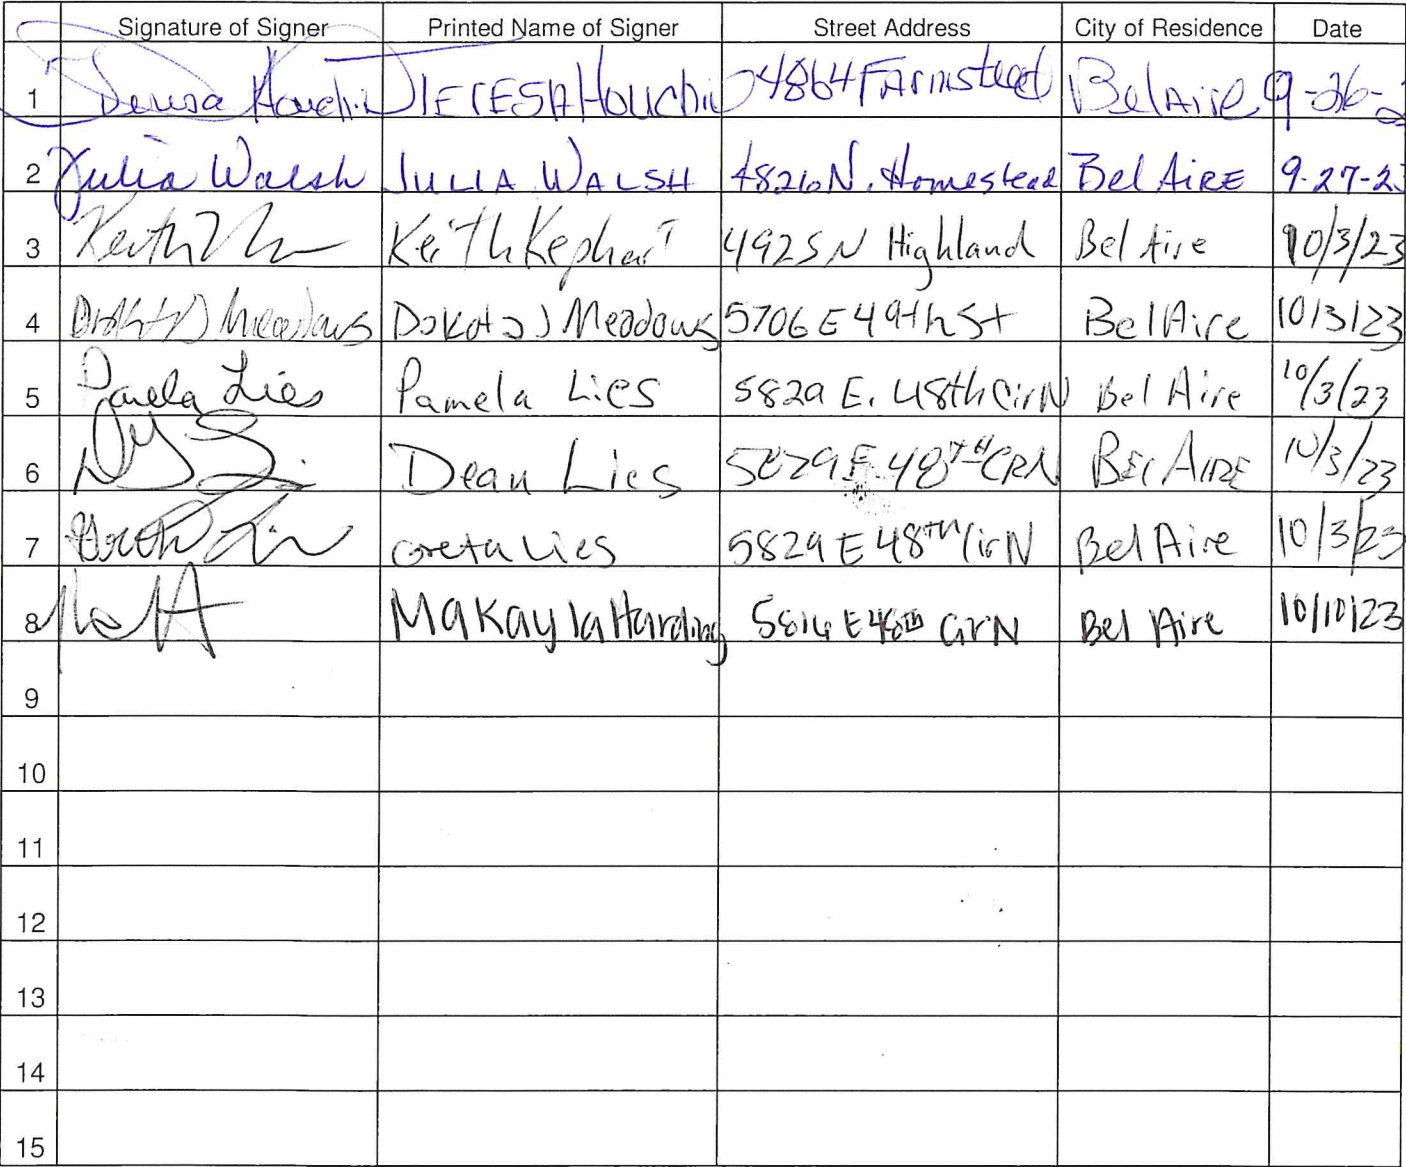 Signature of Signer Printed Name of Signer Street Address City of Residence Date
1 Teresa Houchin TERESA Houchin 4864 Farmstead Bel Aire 9-26-2
2 Julia Walsh JULIA WALSH 4826 N. Homestead Bel AiRE 9-27-23
3 Keith Keith Kephart 4925 N Highland Bel Aire 10/3/23
4 Dakota J Meadows Dakota J Meadows 5706 E 49th St Bel Aire 10/3/23
5 Pamela Lies Pamela Lies 5829 E. 48th Cir N Bel Aire 10/3/23
6 Dean Lies 5829 E. 48TH CRN BEL AIRE 10/3/23
7 Greta Lies Greta Lies 5829 E 48TH Cir N Bel Aire 10/3/23
8 Makayla Harding 5816 E 48th Cir N Bel Aire 10/10/23
9
10
11
12
13
14
15